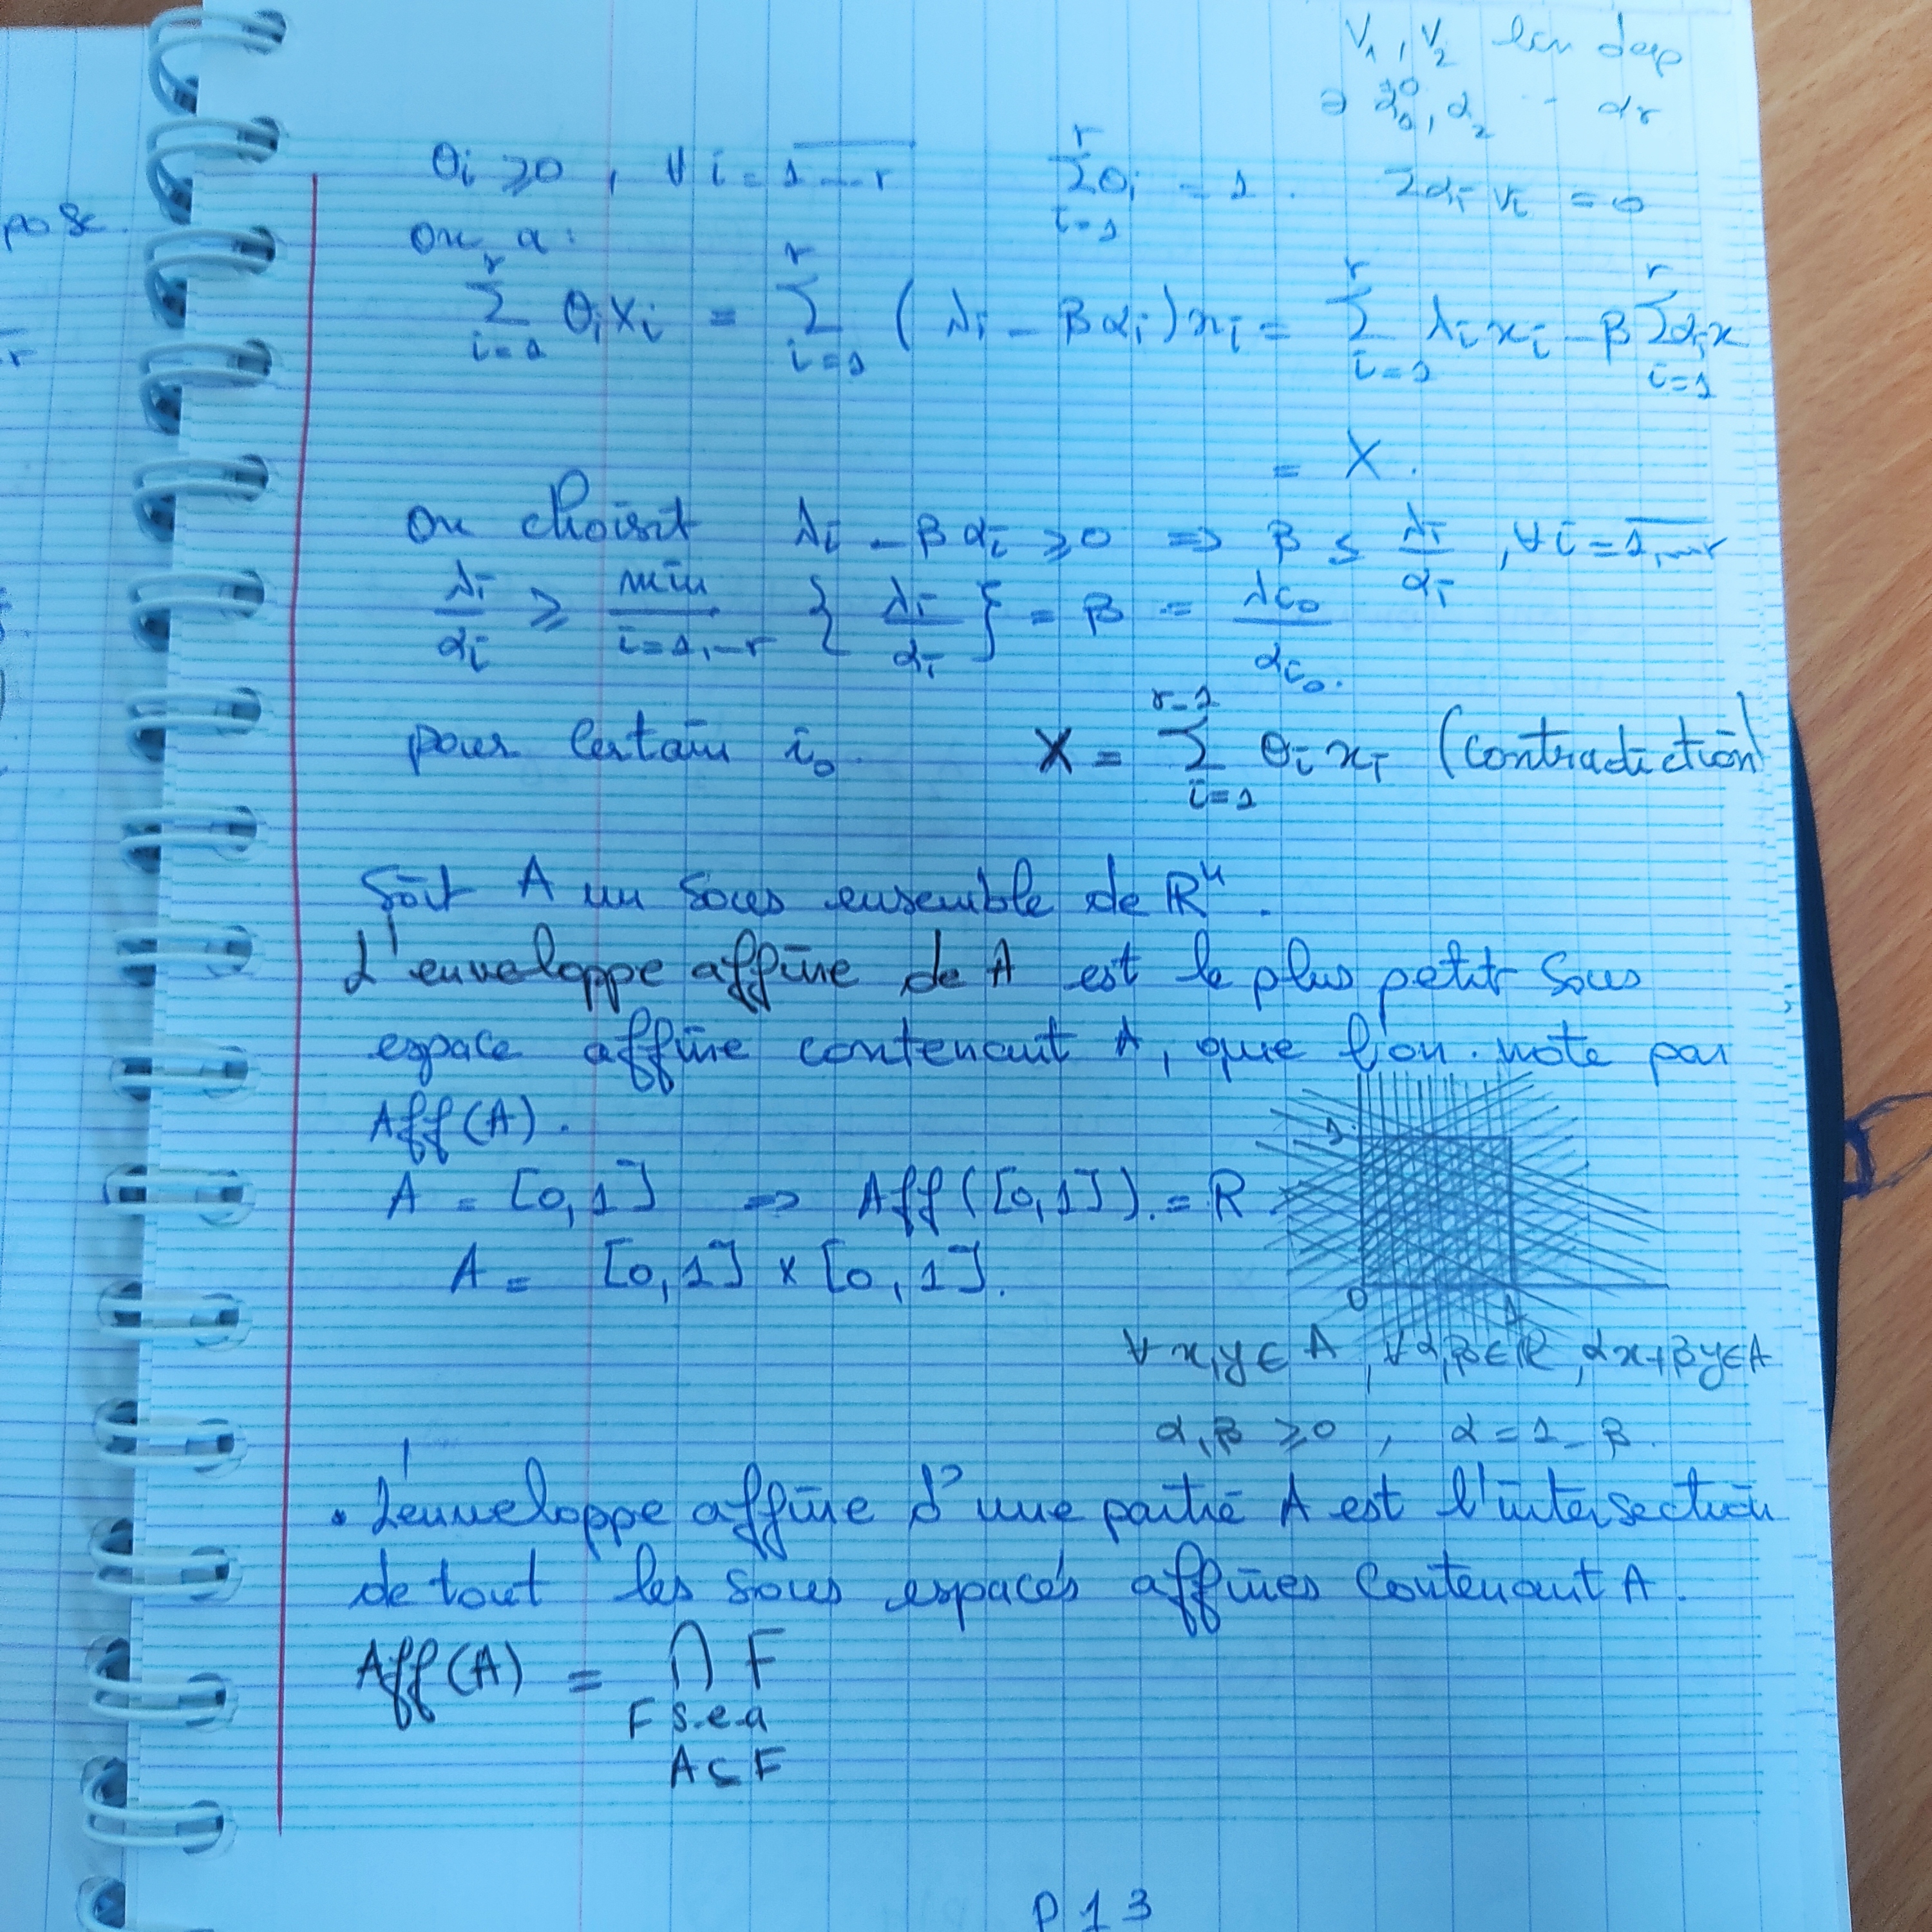 V₁, V₂ lin dep
α₀, α₂ -- αr
θi ⩾ 0, ∀ i = 1--r   r∑i=1 θi = 1.   Σαi vi = 0
on a:
r∑i=1 θi xi = r∑i=1 (λi - βαi) xi = r∑i=1 λi xi - β r∑i=1 αi x
= X.
on choisit λi - βαi ⩾ 0 ⇒ β ≤ λi/αi, ∀ i = 1,--r
λi/αi ⩾ min i=1,--r { λi/αi } = β = λi₀/αi₀.
pour certain i₀   X = r-1∑i=1 θi xi (contradiction)
Soit A un sous ensemble de ℝⁿ.
L'enveloppe affine de A est le plus petit sous
espace affine contenant A, que l'on note par
Aff(A).
1
A = [0,1] ⇒ Aff([0,1]). = R
A = [0,1] × [0,1].
0 1
∀ x,y ∈ A, ∀ α,β ∈ ℝ, αx+βy ∈ A
α,β ⩾ 0, α = 1-β.
• L'enveloppe affine d'une partie A est l'intersection
de tout les sous espaces affines contenant A.
Aff(A) = ⋂ F
F s.e.a
A ⊂ F
P13